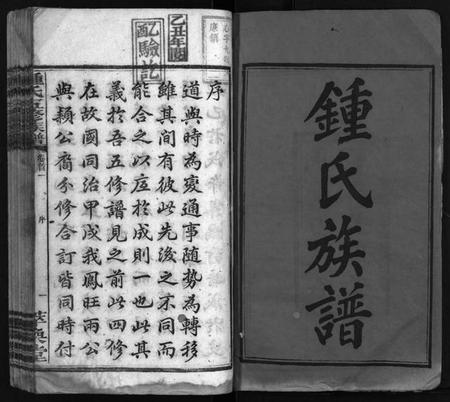 鍾氏族譜
乙丑年
配驗訖
序
道與時為變通事随勢為轉移
雖其間有彼此先後之不同而
能合之以底於成則一也此其
義於吾五修譜見之前此四修
在故國同治甲戍我鳳旺兩公
與穎公裔分修合訂皆同時付
鍾氏五修族譜
序
一